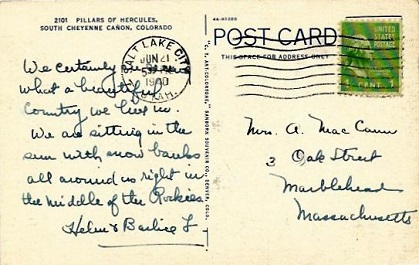 2101 PILLARS OF HERCULES,
SOUTH CHEYENNE CAÑON, COLORADO
We certainly
what a beautiful
country we live in.
We are sitting in the
sun with snow banks
all around us right in
the middle of the Rockies
Helen &
SALT LAKE CITY
JUN 21
UTAH
POST CARD
THIS SPACE FOR ADDRESS ONLY
UNITED STATES
POSTAGE
CENT
SANBORN SOUVENIR CO., DENVER, COLO.
Mrs. A. MacCann
3 Oak Street
Marblehead
Massachusetts